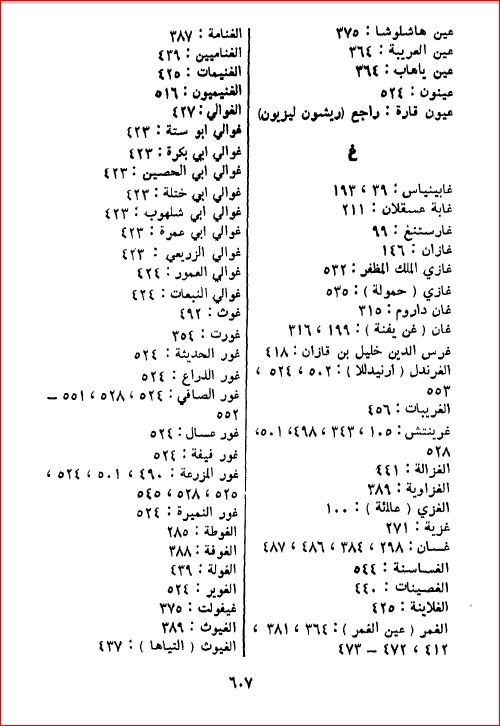 عين هاشلوشا : ٣٧٥
عين العريبة : ٣٦٤
عين ياهاب : ٣٦٤
عينون : ٥٢٤
عيون قارة : راجع (ريشون ليزيون)
غ
غابينياس : ٣٩ ، ١٩٣
غابة عسقلان : ٢١١
غارستنغ : ٩٩
غازان : ١٤٦
غازي الملك المظفر : ٥٣٢
غازي ( حمولة ) : ٥٣٥
غان داروم : ٣١٥
غان ( غن يفنة ) : ١٩٩ ، ٣١٦
غرس الدين خليل بن قازان : ٤١٨
الغرندل ( ارنيدللا ) : ٥٠٢ ، ٥٢٤ ،
٥٥٣
الغريبات : ٤٥٦
غرينتش : ١٠٥ ، ٣٤٣ ، ٤٩٨ ، ٥٠١،
٥٢٨
الغزالة : ٤٤١
الغزاوية : ٣٨٩
الغزي ( عائلة ) : ١٠٠
غزية : ٢٧١
غسان : ٢٩٨ ، ٣٨٤ ، ٤٨٦ ، ٤٨٧
الغساسنة : ٥٤٤
الغصينات : ٤٤٠
الغلاينة : ٤٢٥
الغمر ( عين الغمر ) : ٣٦٤ ، ٣٨١ ،
٤١٢ ، ٤٧٢ – ٤٧٣
الغنامة : ٣٨٧
الغناميين : ٤٣٩
الغنيمات : ٤٢٥
الغنيميون : ٥١٦
الغوالي : ٤٢٧
غوالي ابو ستة : ٤٢٣
غوالي ابي بكرة : ٤٢٣
غوالي ابي الحصين : ٤٢٣
غوالي ابي ختلة : ٤٢٣
غوالي ابي شلهوب : ٤٢٣
غوالي ابي عمرة : ٤٢٣
غوالي الزريعي : ٤٢٣
غوالي العمور : ٤٢٤
غوالي النبعات : ٤٢٤
غوث : ٤٩٢
غورت : ٣٥٤
غور الحديثة : ٥٢٤
غور الذراع : ٥٢٤
غور الصافي : ٥٢٤ ، ٥٢٨ ، ٥٥١ –
٥٥٢
غور عسال : ٥٢٤
غور فيفة : ٥٢٤
غور المزرعة : ٤٩٠ ، ٥٠١ ، ٥٢٤ ،
٥٢٥ ، ٥٢٨ ، ٥٤٥
غور النميرة : ٥٢٤
الغوطة : ٢٨٥
الغوفة : ٣٨٨
الغولة : ٤٣٩
الغوير : ٥٢٤
غيفولت : ٣٧٥
الغيوث : ٣٨٩
الغيوث ( التياها ) : ٤٣٧
٦٠٧